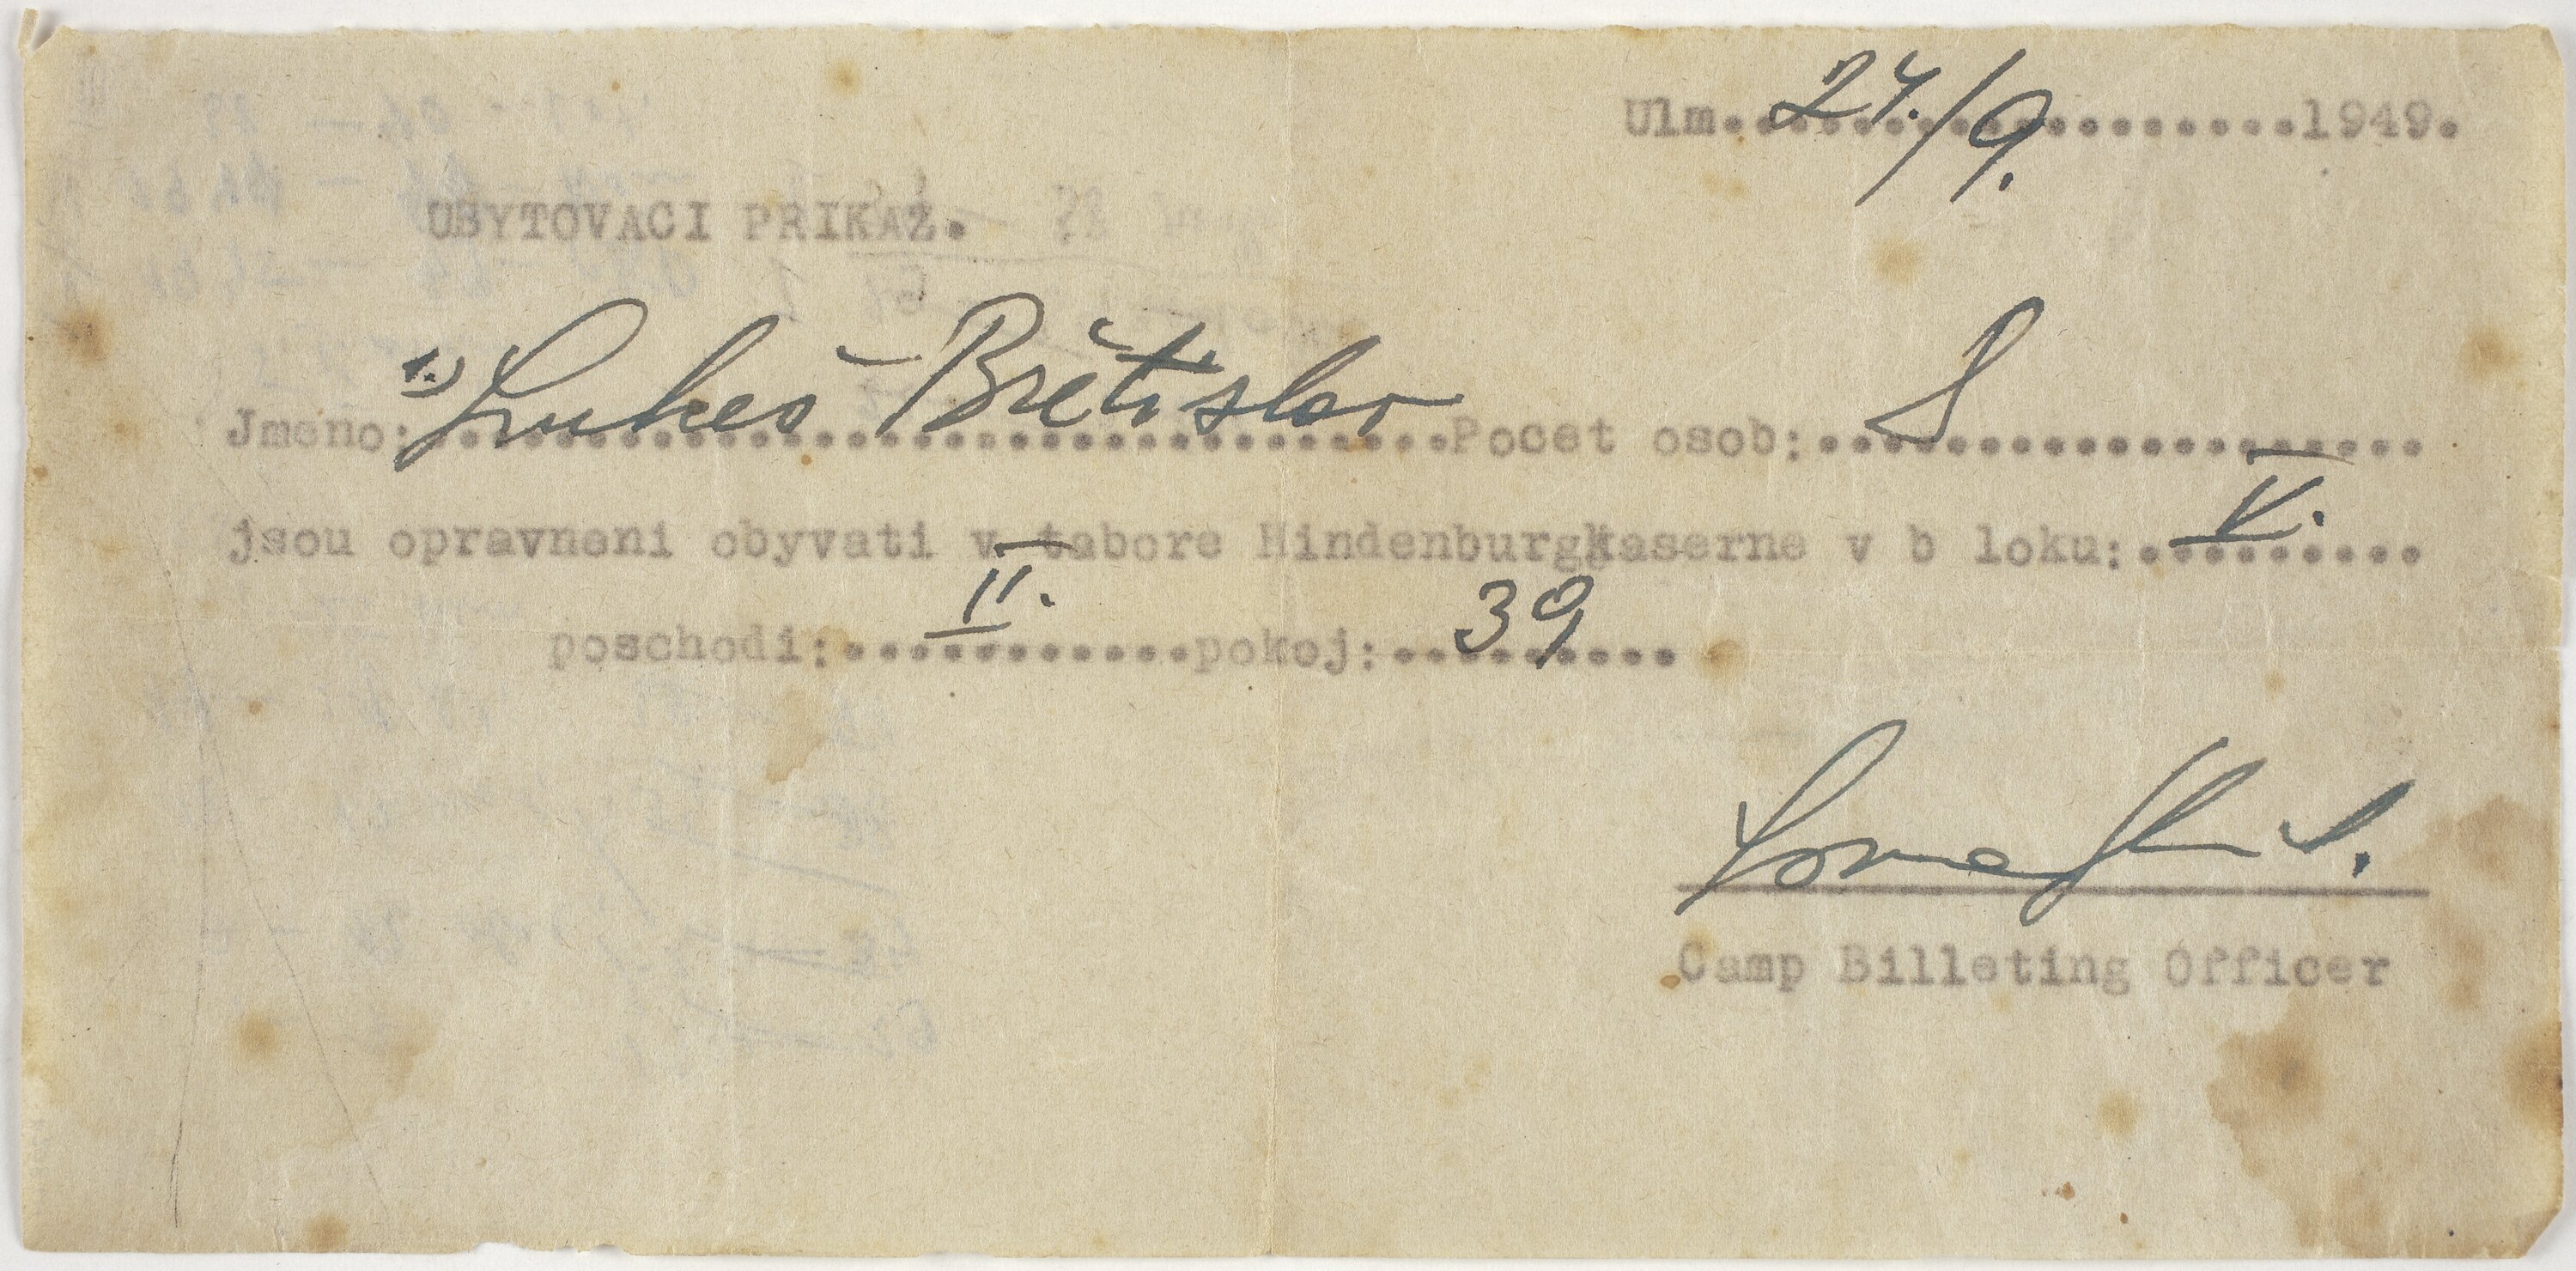 Ulm. 24./9. 1949.
UBYTOVACI PRIKAZ.
Jmeno: 1.) Lukeš Břetislav Pocet osob: 8
jsou opravneni obyvati v tabore Hindenburgkaserne v b loku: V.
poschodi: II. pokoj: 39
Camp Billeting Officer